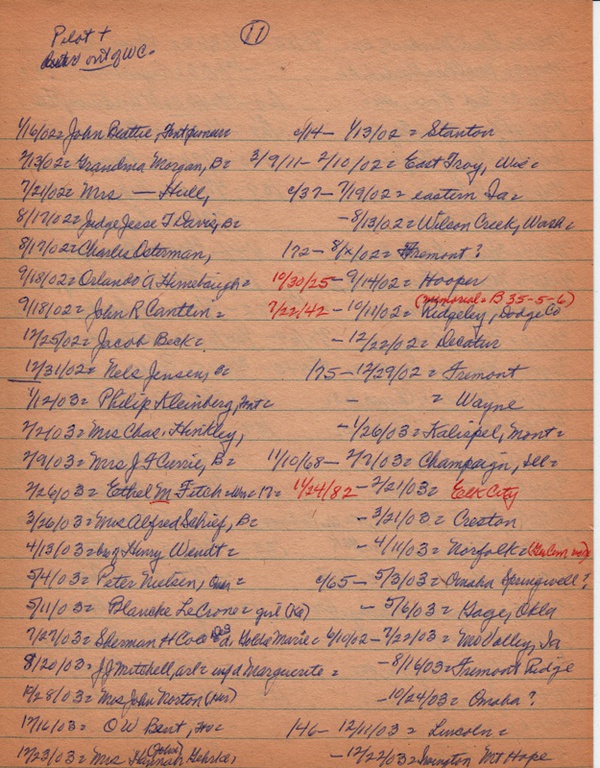 Pilot +
out of WC.
11
1/16/02 = John Beattie, c/14 – 1/13/02 = Stanton
2/13/02 = Grandma Morgan, B = 3/9/11 – 2/10/02 = East Troy, Wis =
7/21/02 = Mrs — Hull, c/37 – 7/19/02 = eastern Ia =
8/17/02 = Judge Jesse T Davis, B = – 8/13/02 = Wilson Creek, Wash =
8/17/02 = Charles Osterman, 1/72 – 8/x/02 = Fremont ?
9/18/02 = Orlando A Himebaugh = 10/30/25 – 9/14/02 = Hooper
(memorial = B 35-5-6)
9/18/02 = John R Cantlin = 7/22/42 – 10/11/02 = Ridgeley, Dodge Co
12/25/02 = Jacob Beck = – 12/22/02 = Decatur
12/31/02 = Nels Jensen, 1/75 – 12/29/02 = Fremont
1/12/03 = Philip Kleinberg, – = Wayne
2/2/03 = Mrs Chas. Hinkley, – 1/26/03 = Kalispel, Mont =
2/9/03 = Mrs J F Currie, B = 11/10/68 – 2/7/03 = Champaign, Ill =
2/26/03 = Ethel M Fitch = 11/24/82 – 2/21/03 = Elk City
3/26/03 = Mrs Alfred Schief, B = – 3/21/03 = Creston
4/13/03 = Henry Wendt = – 4/11/03 = Norfolk =
5/4/03 = Peter Nielsen, c/65 – 5/3/03 = Omaha Springwell ?
5/11/03 = Blanche LeCrone = girl – 5/6/03 = Gage, Okla
7/27/03 = Sherman H Coe Golda Marie = 6/10/02 – 7/22/03 = Mo Valley, Ia
8/20/03 = J J Mitchell, inf d Marguerite = – 8/16/03 = Fremont Ridge
10/28/03 = Mrs John Norton – 10/24/03 = Omaha ?
12/16/03 = O W Bent, 1/46 – 12/11/03 = Lincoln =
12/23/03 = Mrs (John) Hannah Gehrke, – 12/22/03 = Irvington Mt Hope